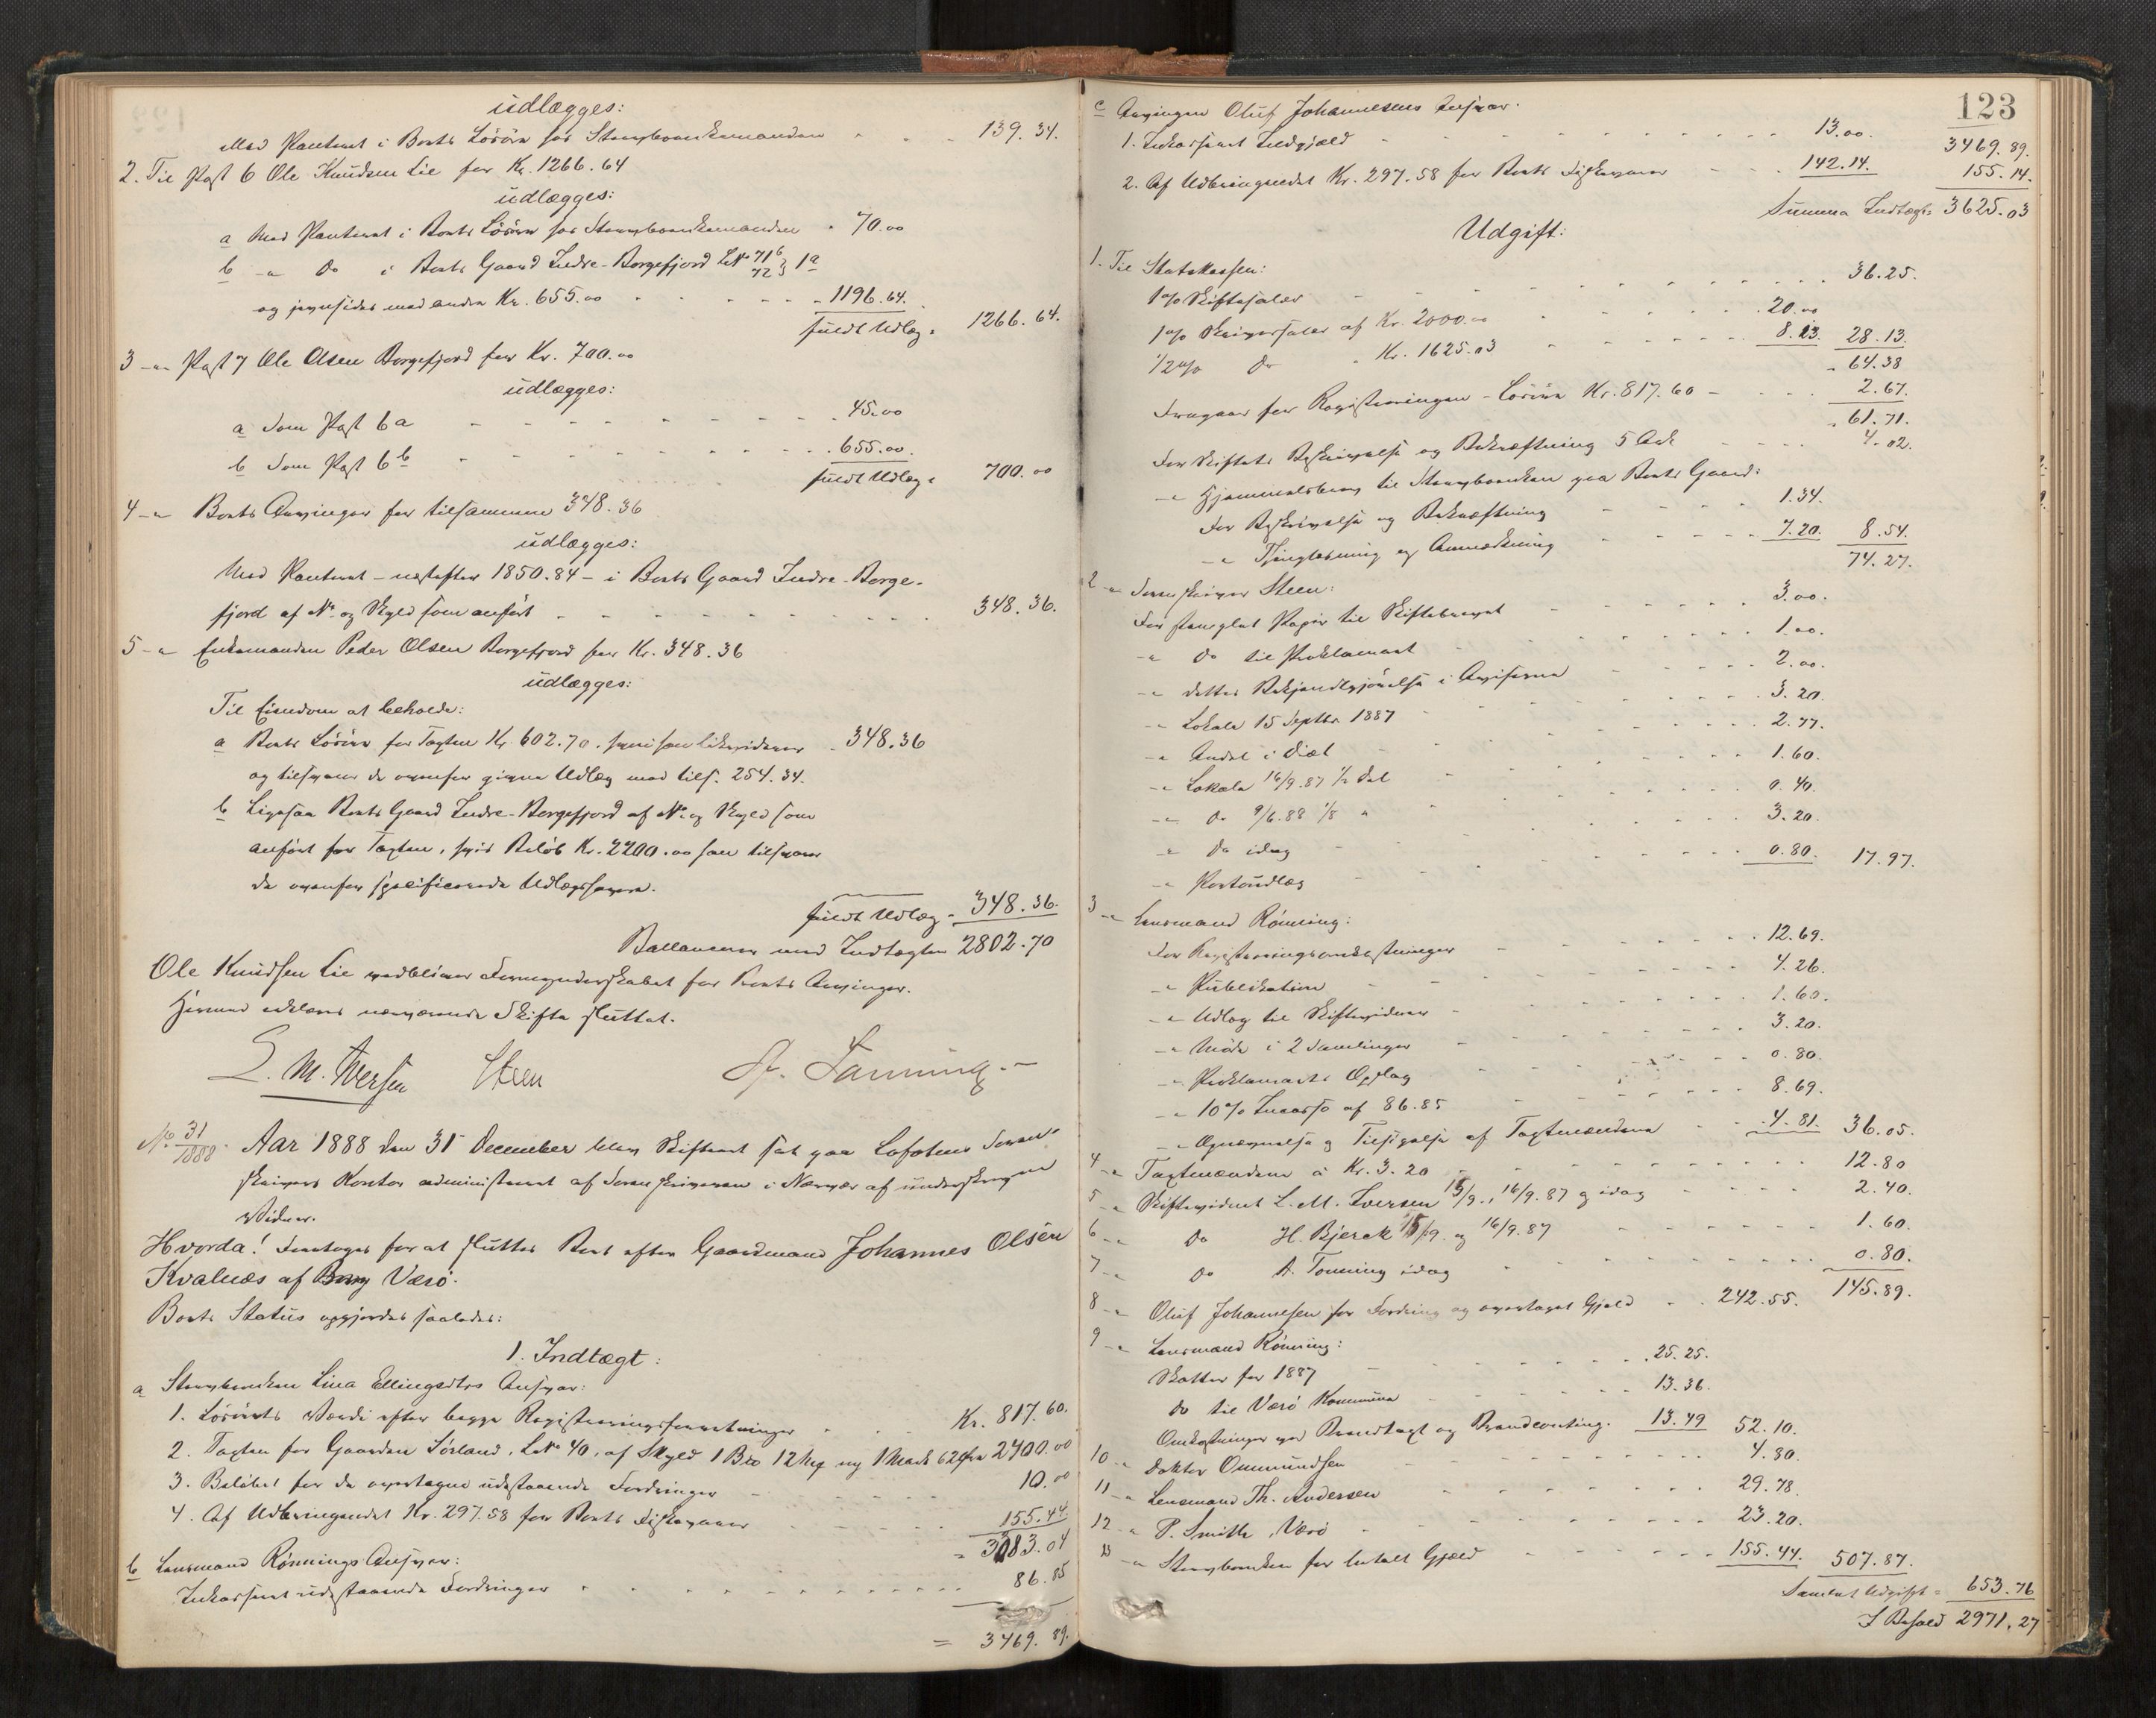 udlægges:
Med Panteret i Boets Løsøre hos Stervboenkemanden 139.34.
2. Til Post 6 Ole Knudsen Lie for Kr. 1266.64
udlægges:
a Med Panteret i Boets Løsøre hos Stervboenkemanden 70.00
b -"- Do i Boets Gaard Indre-Borgefjord LNo 71b 72 } 1a
og jevnsides med anden Kr. 655.00 1196.64.
fuldt Udlæg = 1266.64.
3 -"- Post 7 Ole Olsen Borgefjord for Kr. 700.00
udlægges:
a Som Post 6a 45.00
b Som Post 6b 655.00.
fuldt Udlæg = 700.00
4 -"- Boets Arvinger for tilsammen 348.36
udlægges:
Med Panteret - næstefter 1850.84 - i Boets Gaard Indre-Borge-
fjord af No og Skyld som anført 348.36.
5 -"- Enkemanden Peder Olsen Borgefjord for Kr. 348.36
udlægges:
Til Eiendom at beholde:
a Boets Løsøre for Taxten Kr. 602.70. hvori han likviderer 348.36
og tilsvarer de ovenfor givne Udlæg med tils. 254.34.
b Ligesaa Boets Gaard Indre-Borgefjord af No og Skyld som
anført for Taxten, hvis Beløb Kr. 2200.00 han tilsvarer
de ovenfor specificerede Udlægshavere.
fuldt Udlæg = 348.36.
Ballancerer med Indtægten 2802.70
Ole Knudsen Lie vedbliver Formynderskabet for Boets Arvinger.
Hermed erklæres nærværende Skifte sluttet.
L. M. Iversen Steen A. Tonning.
No 31/1888. Aar 1888 den 31 December blev Skifteret sat paa Lofotens Soren-
skrivers Kontor administreret af Sorenskriveren i Nærvær af underskrevne
Vidner.
Hvorda! Foretoges for at sluttes Boet efter Gaardmand Johannes Olsen
Kvalnæs af Værø.
Boets Status opgjordes saaledes:
1. Indtægt:
a Stervboenken Lina Ellingsdtrs Ansvar:
1. Løsørets Værdi efter begge Registreringsforretninger Kr. 817.60.
2. Taxten for Gaarden Sørland, LNo 40, af Skyld 1 Bro 12 Mrk ny 1 Mark 62 Øre 2400.00
3. Beløbet for de overtagne udestaaende Fordringer 10.00
4. Af Udbringendet Kr. 297.58 for Boets Fiskevarer 155.44.
= 3383.04
b Lensmand Rønnings Ansvar:
Inkasseret udestaaende Fordringer 86.85
= 3469.89.
123
c Arvingen Oluf Johannesens Ansvar:
1. Inkasseret Indgjæld 13.00. 3469.89.
2. Af Udbringendet Kr. 297.58 for Boets Fiskevarer 142.14. 155.14.
Summa Indtægt = 3625.03
Udgift:
1. Til Statskassen:
1% Skiftesaler 36.25.
1% Skriversaler af Kr. 2000.00 20.00
1/2% Do " Kr. 1625.03 8.13. 28.13.
64.38
Fragaar for Registreringen - Løsøre Kr. 817.60 - 2.67.
61.71.
For Skiftets Beskrivelse og Bekræftning 5 Ark 4.02.
-"- Hjemmelsbrev til Stervboenken paa Boets Gaard:
For Beskrivelse og Bekræftning 1.34.
-"- Thinglæsning og Anmærkning 7.20. 8.54.
74.27.
2 -"- Sorenskriver Steen:
For stemplet Papir til Skiftebrevet 3.00.
-"- Do til Proklamaet 1.00.
-"- dettes Bekjendtgjørelse i Aviserne 2.00.
-"- Lokale 15 Septbr. 1887 3.20.
-"- Andel i Diæt 2.77.
-"- Lokale 16/9.87 1/2 Del 1.60.
-"- Do 9/6.88 1/8 " 0.40.
-"- Do idag 3.20.
-"- Portoudlæg 0.80. 17.97.
3 -"- Lensmand Rønning:
For Registreringsomkostninger 12.69.
-"- Publikation 4.26.
-"- Udlæg til Skiftevidner 1.60.
-"- Møde i 2 Samlinger 3.20.
-"- Proklamaets Opslag 0.80.
-"- 10% Incasso af 86.85 8.69.
-"- Opnævnelse og Tilsigelse af Taxtmændene 4.81. 36.05.
4 -"- Taxtmændene á Kr. 3.20 12.80
5 -"- Skiftevidnet L. M. Iversen 15/9., 16/9.87 og idag 2.40.
6 -"- Do H. Bjerck 15/9. og 16/9.87 1.60.
7 -"- Do A. Tonning idag 0.80.
145.89.
8 -"- Oluf Johannesen for Fordring og overtaget Gjæld 242.55.
9 -"- Lensmand Rønning:
Skatter for 1887 25.25.
Do til Værø Kommune 13.36.
Omkostninger ved Brandtaxt og Brandconting. 13.49 52.10.
10 -"- Doktor Ommundsen 4.80.
11 -"- Lensmand Th. Andersen 29.78.
12 -"- P. Smith, Værø 23.20.
13 -"- Stervboenken for betalt Gjæld 155.44. 507.87.
Samlet Udgift = 653.76
I Behold 2971.27